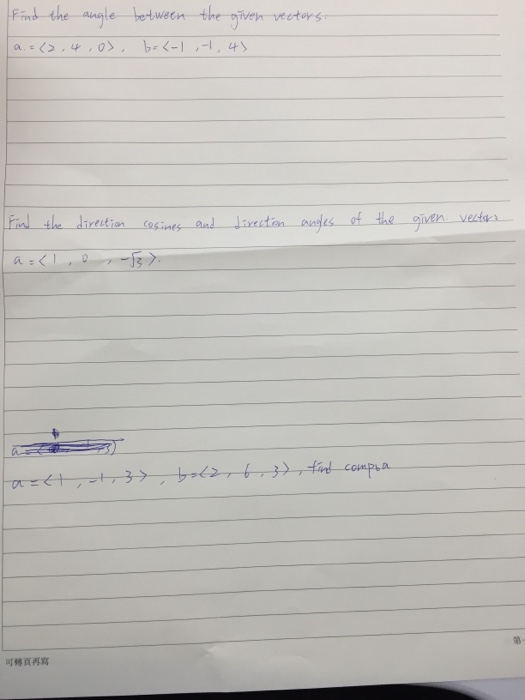 Find the angle between the given vectors.
a = <2, 4, 0>, b = <-1, -1, 4>
Find the direction cosines and direction angles of the given vectors
a = <1, 0, -√3>.
a = <1, -1, 3>, b = <2, 6, 3>, find comp_b a
可轉頁再寫
第